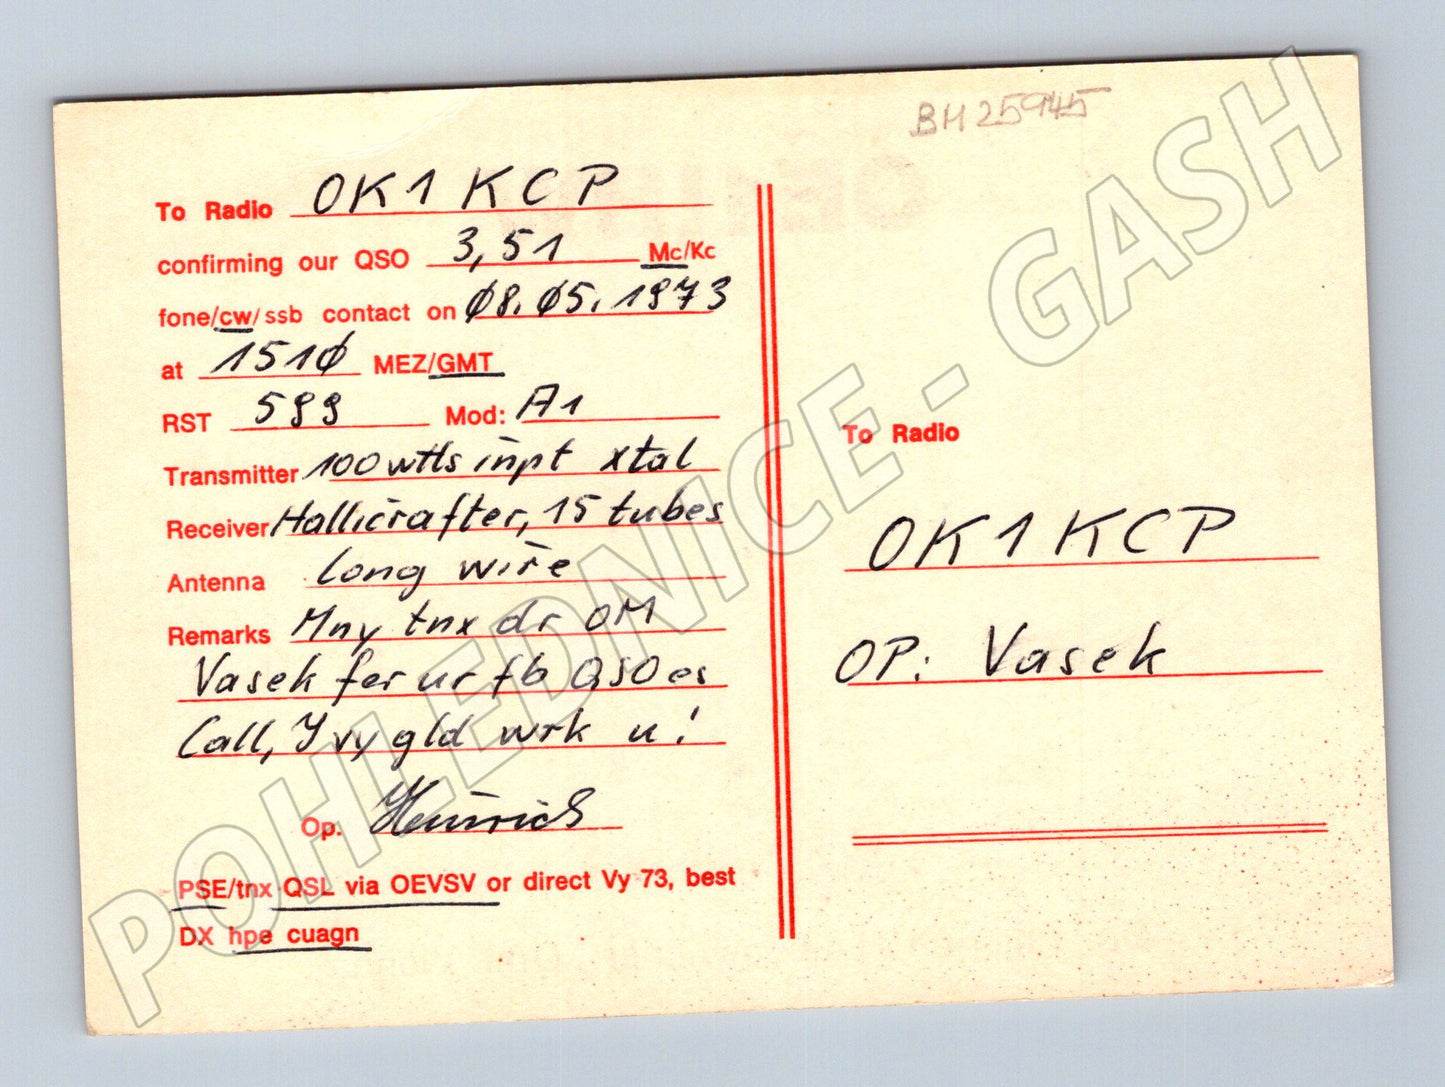 BH25945
To Radio OK1KCP
confirming our QSO 3,51 Mc/Kc
fone/cw/ssb contact on Ø8.Ø5.1973
at 151Ø MEZ/GMT
RST 599 Mod: A1
Transmitter 100wtts inpt xtal
Receiver Hallicrafter, 15 tubes
Antenna long wire
Remarks Mny tnx dr OM
Vasek fer ur fb QSO es
Call, I vy gld wrk u!
Op. Heinrich
PSE/tnx QSL via OEVSV or direct Vy 73, best
DX hpe cuagn
To Radio
OK1KCP
OP: Vasek
POHLEDNICE - GASH